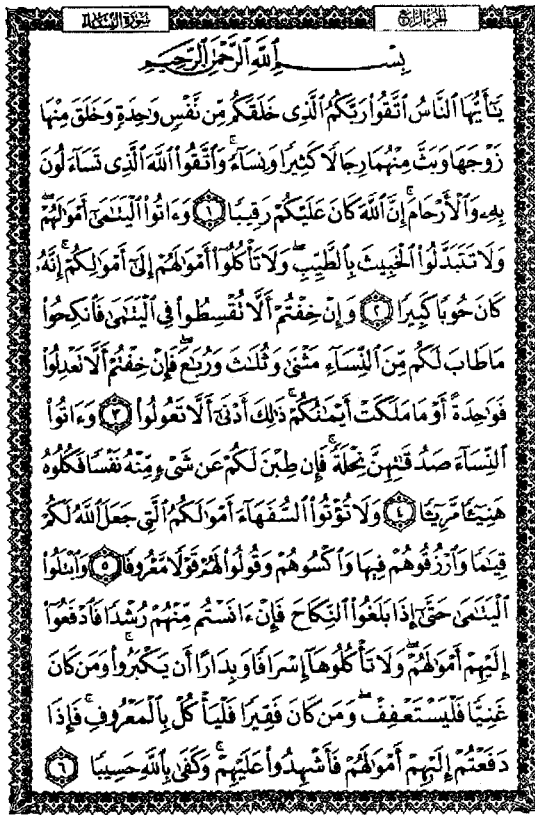 سورة النساء
الجزء الرابع
بِسْمِ اللَّهِ الرَّحْمَٰنِ الرَّحِيمِ
يَٰٓأَيُّهَا ٱلنَّاسُ ٱتَّقُوا۟ رَبَّكُمُ ٱلَّذِى خَلَقَكُم مِّن نَّفْسٍ وَٰحِدَةٍ وَخَلَقَ مِنْهَا
زَوْجَهَا وَبَثَّ مِنْهُمَا رِجَالًا كَثِيرًا وَنِسَآءً ۚ وَٱتَّقُوا۟ ٱللَّهَ ٱلَّذِى تَسَآءَلُونَ
بِهِۦ وَٱلْأَرْحَامَ ۚ إِنَّ ٱللَّهَ كَانَ عَلَيْكُمْ رَقِيبًا ١ وَءَاتُوا۟ ٱلْيَتَٰمَىٰٓ أَمْوَٰلَهُمْ ۖ
وَلَا تَتَبَدَّلُوا۟ ٱلْخَبِيثَ بِٱلطَّيِّبِ ۖ وَلَا تَأْكُلُوٓا۟ أَمْوَٰلَهُمْ إِلَىٰٓ أَمْوَٰلِكُمْ ۚ إِنَّهُۥ
كَانَ حُوبًا كَبِيرًا ٢ وَإِنْ خِفْتُمْ أَلَّا تُقْسِطُوا۟ فِى ٱلْيَتَٰمَىٰ فَٱنكِحُوا۟
مَا طَابَ لَكُم مِّنَ ٱلنِّسَآءِ مَثْنَىٰ وَثُلَٰثَ وَرُبَٰعَ ۖ فَإِنْ خِفْتُمْ أَلَّا تَعْدِلُوا۟
فَوَٰحِدَةً أَوْ مَا مَلَكَتْ أَيْمَٰنُكُمْ ۚ ذَٰلِكَ أَدْنَىٰٓ أَلَّا تَعُولُوا۟ ٣ وَءَاتُوا۟
ٱلنِّسَآءَ صَدُقَٰتِهِنَّ نِحْلَةً ۚ فَإِن طِبْنَ لَكُمْ عَن شَىْءٍ مِّنْهُ نَفْسًا فَكُلُوهُ
هَنِيٓـًٔا مَّرِيٓـًٔا ٤ وَلَا تُؤْتُوا۟ ٱلسُّفَهَآءَ أَمْوَٰلَكُمُ ٱلَّتِى جَعَلَ ٱللَّهُ لَكُمْ
قِيَٰمًا وَٱرْزُقُوهُمْ فِيهَا وَٱكْسُوهُمْ وَقُولُوا۟ لَهُمْ قَوْلًا مَّعْرُوفًا ٥ وَٱبْتَلُوا۟
ٱلْيَتَٰمَىٰ حَتَّىٰٓ إِذَا بَلَغُوا۟ ٱلنِّكَاحَ فَإِنْ ءَانَسْتُم مِّنْهُمْ رُشْدًا فَٱدْفَعُوٓا۟
إِلَيْهِمْ أَمْوَٰلَهُمْ ۖ وَلَا تَأْكُلُوهَآ إِسْرَافًا وَبِدَارًا أَن يَكْبَرُوا۟ ۚ وَمَن كَانَ
غَنِيًّا فَلْيَسْتَعْفِفْ ۖ وَمَن كَانَ فَقِيرًا فَلْيَأْكُلْ بِٱلْمَعْرُوفِ ۚ فَإِذَا
دَفَعْتُمْ إِلَيْهِمْ أَمْوَٰلَهُمْ فَأَشْهِدُوا۟ عَلَيْهِمْ ۚ وَكَفَىٰ بِٱللَّهِ حَسِيبًا ٦